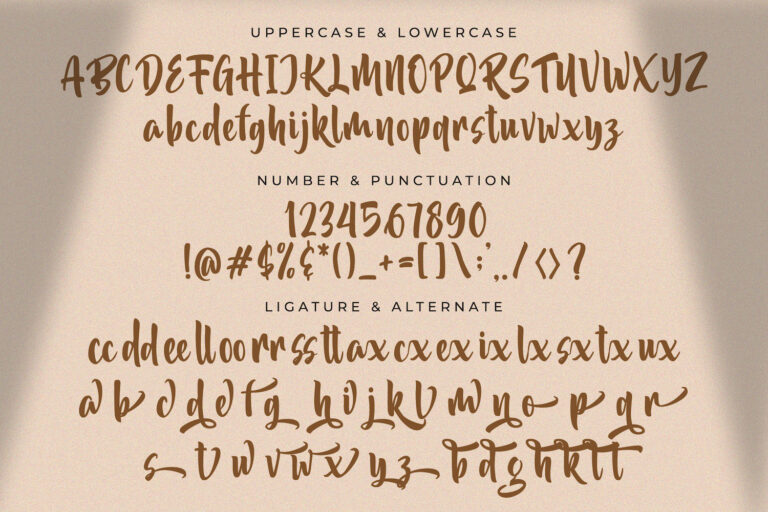 UPPERCASE & LOWERCASE
ABCDEFGHIJKLMNOPQRSTUVWXYZ
abcdefghijklmnopqrstuvwxyz
NUMBER & PUNCTUATION
1234567890
!@#$%&*()_+=[]\;',./<>?
LIGATURE & ALTERNATE
ccddeelloorrssttaxcxexixlxsxtxux
a b c d e f g h i j k l m n o p q r
s t u v w x y z b d g h k l t